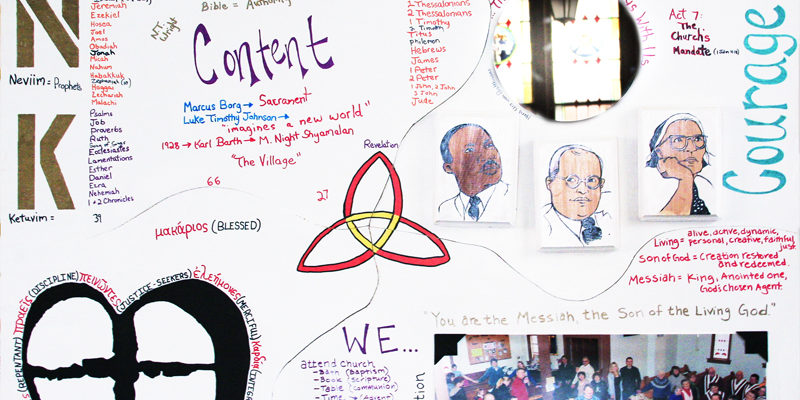 Jeremiah
Ezekiel
Hosea
Joel
Amos
Obadiah
Jonah
Micah
Nahum
Habakkuk
Zephaniah
Haggai
Zechariah
Malachi
N
Neviim = Prophets
Psalms
Job
Proverbs
Ruth
Song of Songs
Ecclesiastes
Lamentations
Esther
Daniel
Ezra
Nehemiah
1 + 2 Chronicles
K
Ketuvim =
39
Bible = Authority
N.T. Wright
Content
Marcus Borg → Sacrament
Luke Timothy Johnson →
"imagines a new world"
1928 → Karl Barth → M. Night Shyamalan
"The Village"
66
27
1 Thessalonians
2 Thessalonians
1 Timothy
2 Timothy
Titus
Philemon
Hebrews
James
1 Peter
2 Peter
1 John, 2 John
3 John
Jude
Revelation
With Us
Act 7:
The
Church's
Mandate
Courage
μακάριος (BLESSED)
πραεῖς (DISCIPLINE) πεινῶντες (JUSTICE-SEEKERS) ἐλεήμονες (MERCIFUL) καρδίᾳ
alive, active, dynamic,
Living = personal, creative, faithful,
just
Son of God = Creation restored
and redeemed.
Messiah = King, Anointed one,
God's Chosen Agent.
"You are the Messiah, the Son of the Living God."
WE...
attend church
- Barn (Baptism)
- Book (Scripture)
- Table (Communion)
- Time → (Advent)